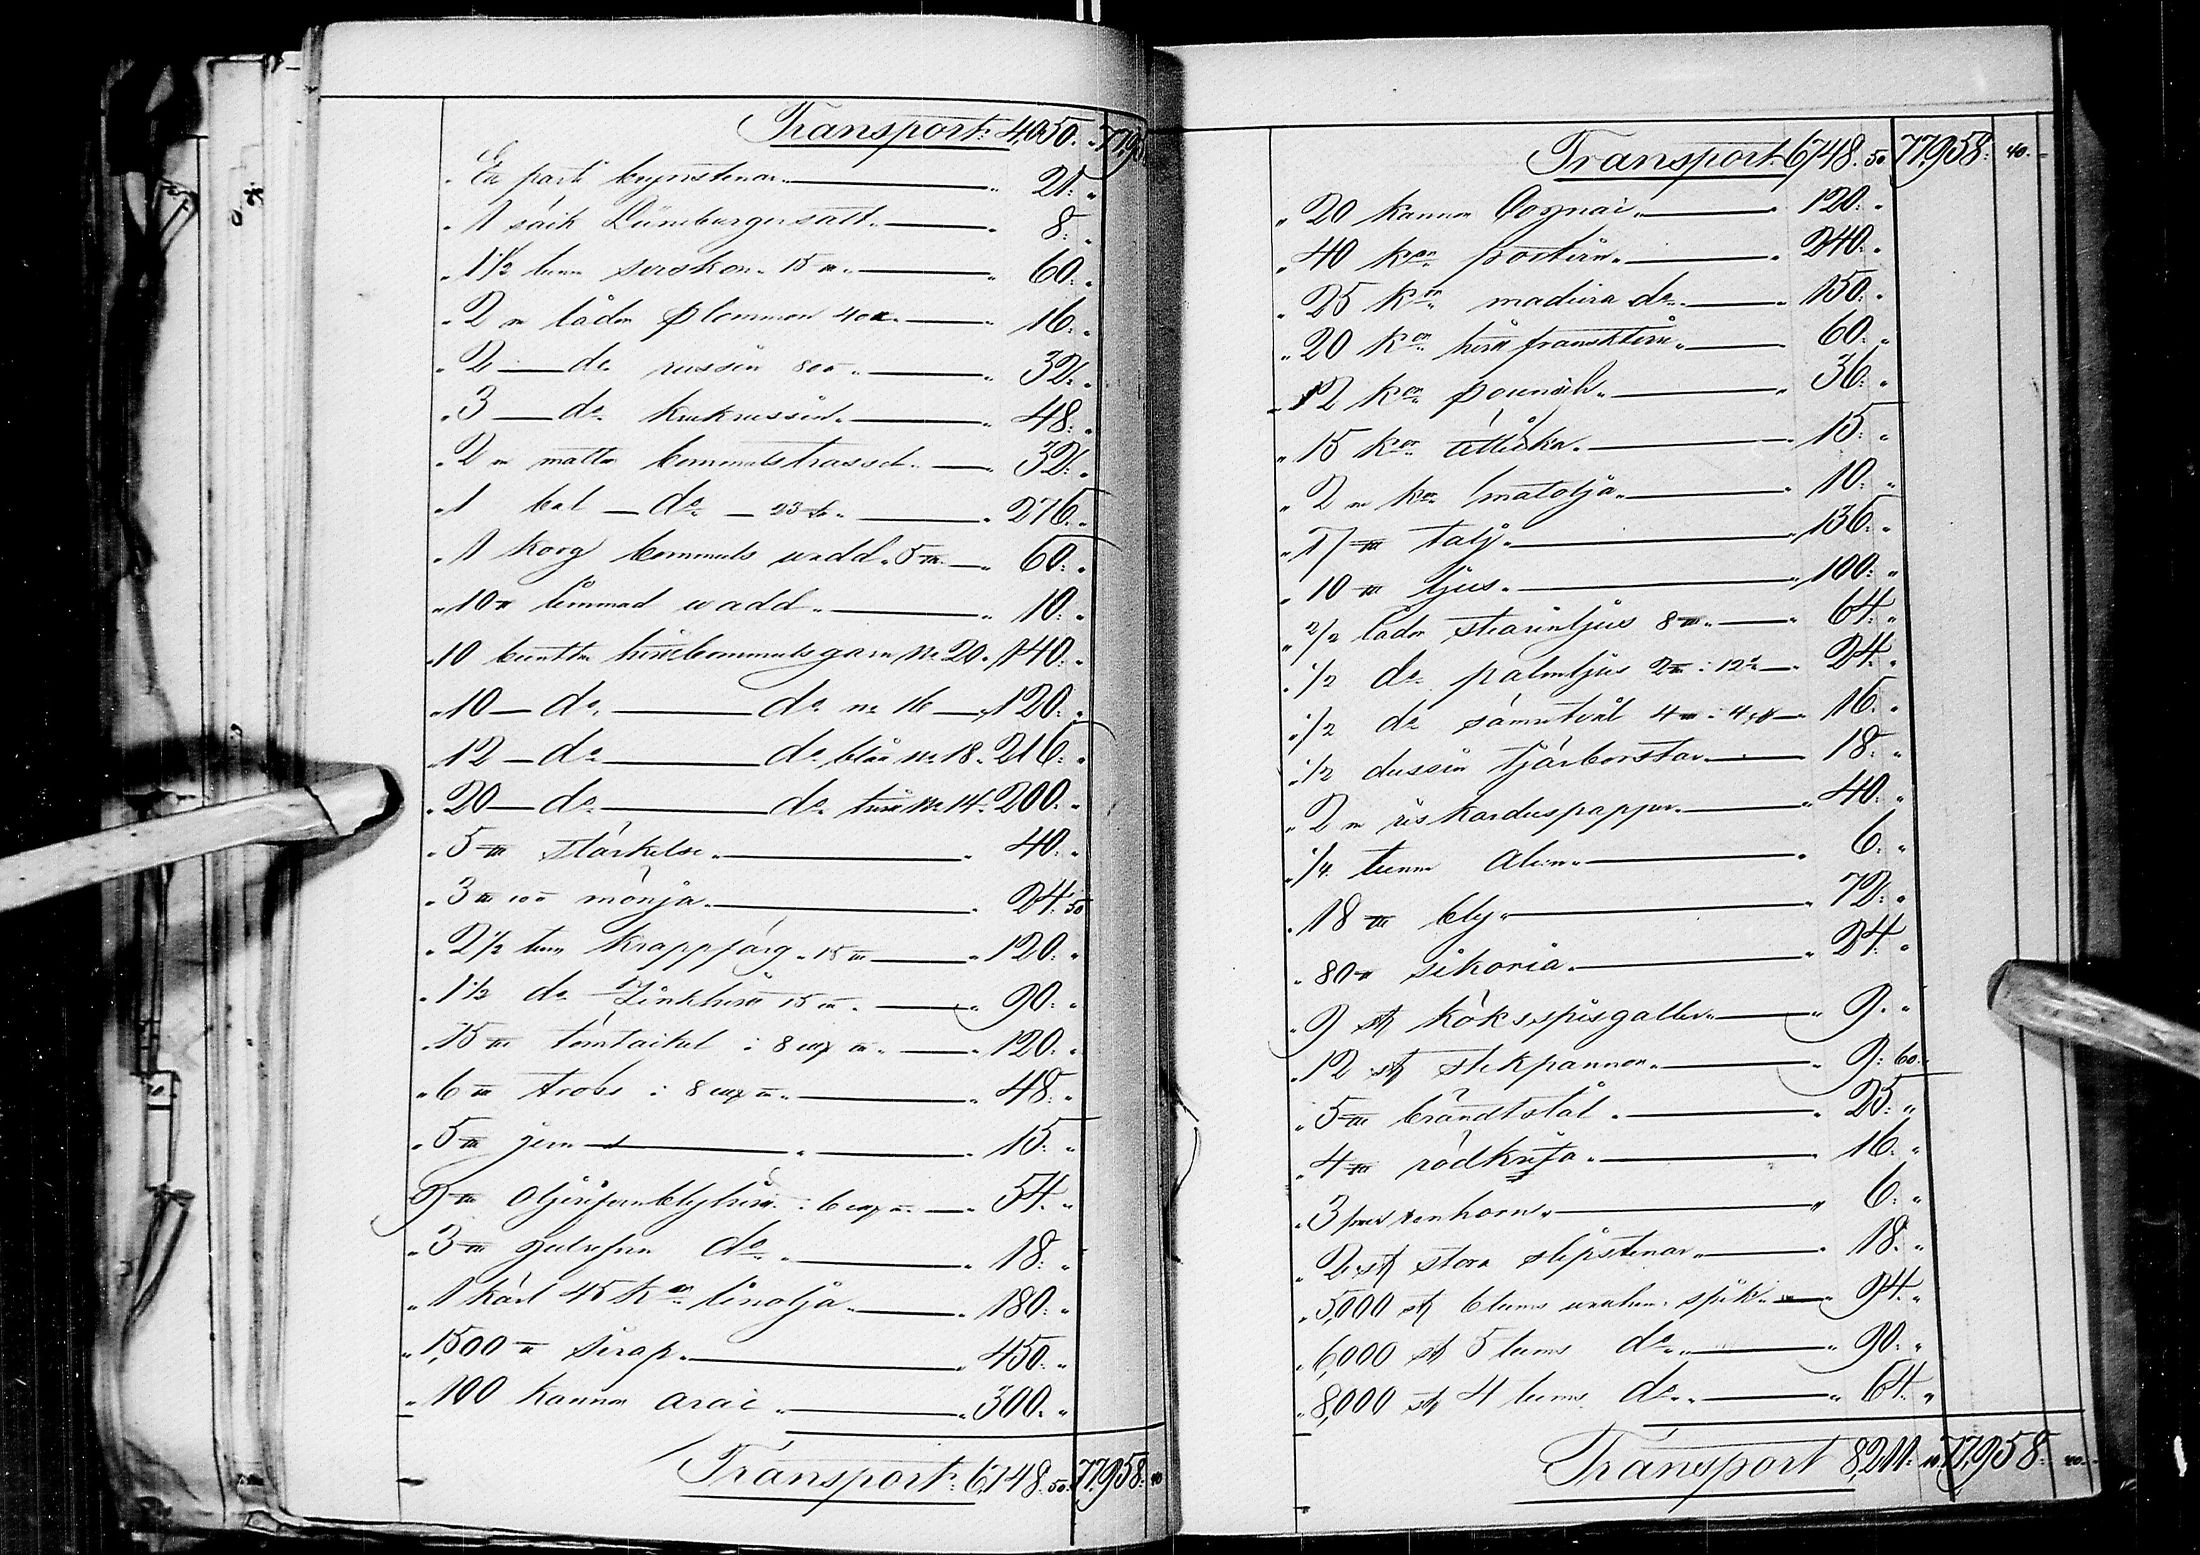 Transport: 4,050. " 77,95
En parti brynstenar " 21: "
" 1 säck Lüneburger salt " 8: "
" 1 1/2 tunn " 60: "
" 2 lådor plommon 40 " 16: "
" 2 — do russin 80 " 32: "
" 3 — do krukrussin " 48: "
" 2 mattor bommulstrassel " 32: "
" 1 bal — do — 23 " 276: "
" 1 korg bommuls wadd 5 " 60: "
" 10 limmad wadd " 10: "
" 10 buntar hwit bommulsgarn No 20 " 140: "
" 10 — do — do No 16 — " 120: "
" 12 — do — do blåa No 18 " 216: "
" 20 — do — do hwit No 14 " 200: "
" 5 stärkelse " 40: "
" 3 100 mönja " 24: 50
" 2 1/2 tunn krappfärg 15 " 120: "
" 1 1/2 do Zinkhwitt 15 " 90: "
" 15 tömtackel : 8 " 120: "
" 6 tross : 8 " 48: "
" 5 " 15: "
9 oljerifven blyhwitt : 6 " 54: "
" 3 gulrifven do " 18: "
" 1 kärl 45 kor linolja " 180: "
" 1,500 sirap " 450: "
" 100 kannor arac " 300: "
Transport: 6,748. 50. 77,958: 40
Transport: 6,748. 50 77,958: 40.
" 20 kannor Cognac " 120: "
" 40 kor portvin " 240: "
" 25 kor madeira do " 150: "
" 20 kor hwit franskt vin " 60: "
" 12 kor pounsch " 36: "
" 15 kor ätticka " 15: "
" 2 kor matolja " 10: "
" 17 talg " 136: "
" 10 ljus " 100: "
" 2/2 lådor stearinljus 8 " 64: "
" 1/2 do palmljus 2 : 12 " 24: "
" 1/2 do 4 : 4 " 16: "
" 1/2 dussin tjärborstar " 18: "
" 2 ris karduspapper " 40: "
" 1/4 tunna alun " 6: "
" 18 bly " 72: "
" 80 sikoria " 24: "
" 9 st köksspisgaller " 9: "
" 12 st stekpannor " 9: 60
" 5 brändtstål " 25: "
" 4 rödkrita " 16: "
" 3 renhorn " 6: "
" 2 st stora slipstenar " 18: "
" 5,000 st 6 tums spik " 94: "
" 6,000 st 5 tums do " 90: "
" 8,000 st 4 tums do " 64: "
Transport 8,211: 10 77,958: 40